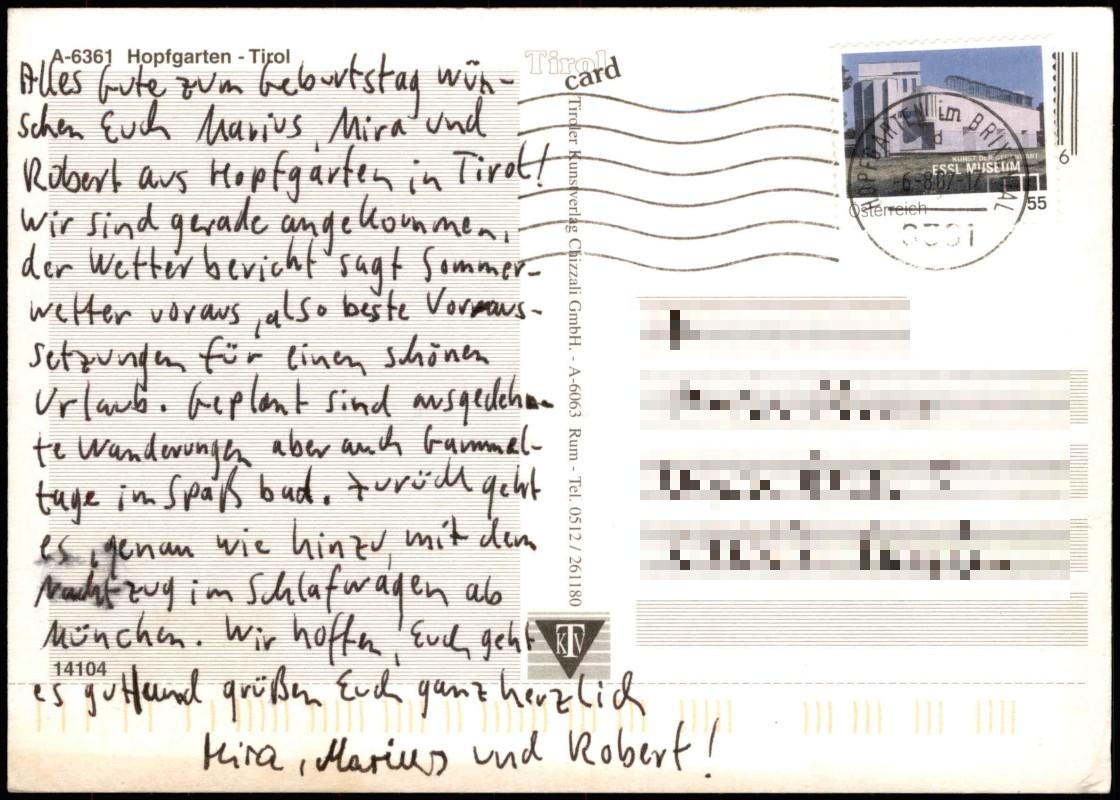 A-6361 Hopfgarten - Tirol
Alles Gute zum Geburtstag wün-
schen Euch Marius, Mira und
Robert aus Hopfgarten in Tirol!
Wir sind gerade angekommen,
der Wetterbericht sagt Sommer-
wetter voraus, also beste Voraus-
setzungen für einen schönen
Urlaub. Geplant sind ausgedehn-
te Wanderungen aber auch Gammel-
tage im Spaß bad. Zurück geht
es, genau wie hinzu, mit dem
Nachtzug im Schlafwagen ab
München. Wir hoffen, Euch geht
es gut und grüßen Euch ganz herzlich
Mira, Marius und Robert!
14104
Tirol
card
Tiroler Kunstverlag Chizzali GmbH. - A-6063 Rum - Tel. 0512 / 261180
KTV
KUNST DER GEGENWART
ESSL MUSEUM
Österreich
55
6
HOPFGARTEN im BRIXENTAL